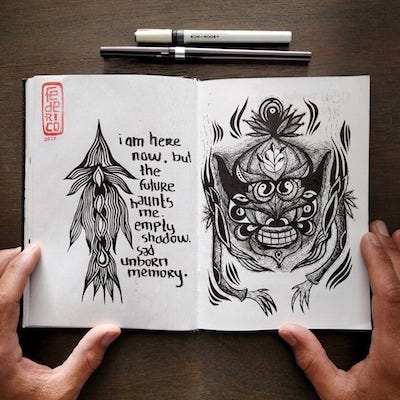 KOH-I-NOOR
FeDERICO
2017
i am here
now, but
the
future
haunts
me.
empty
shadow.
sad
unborn
memory.